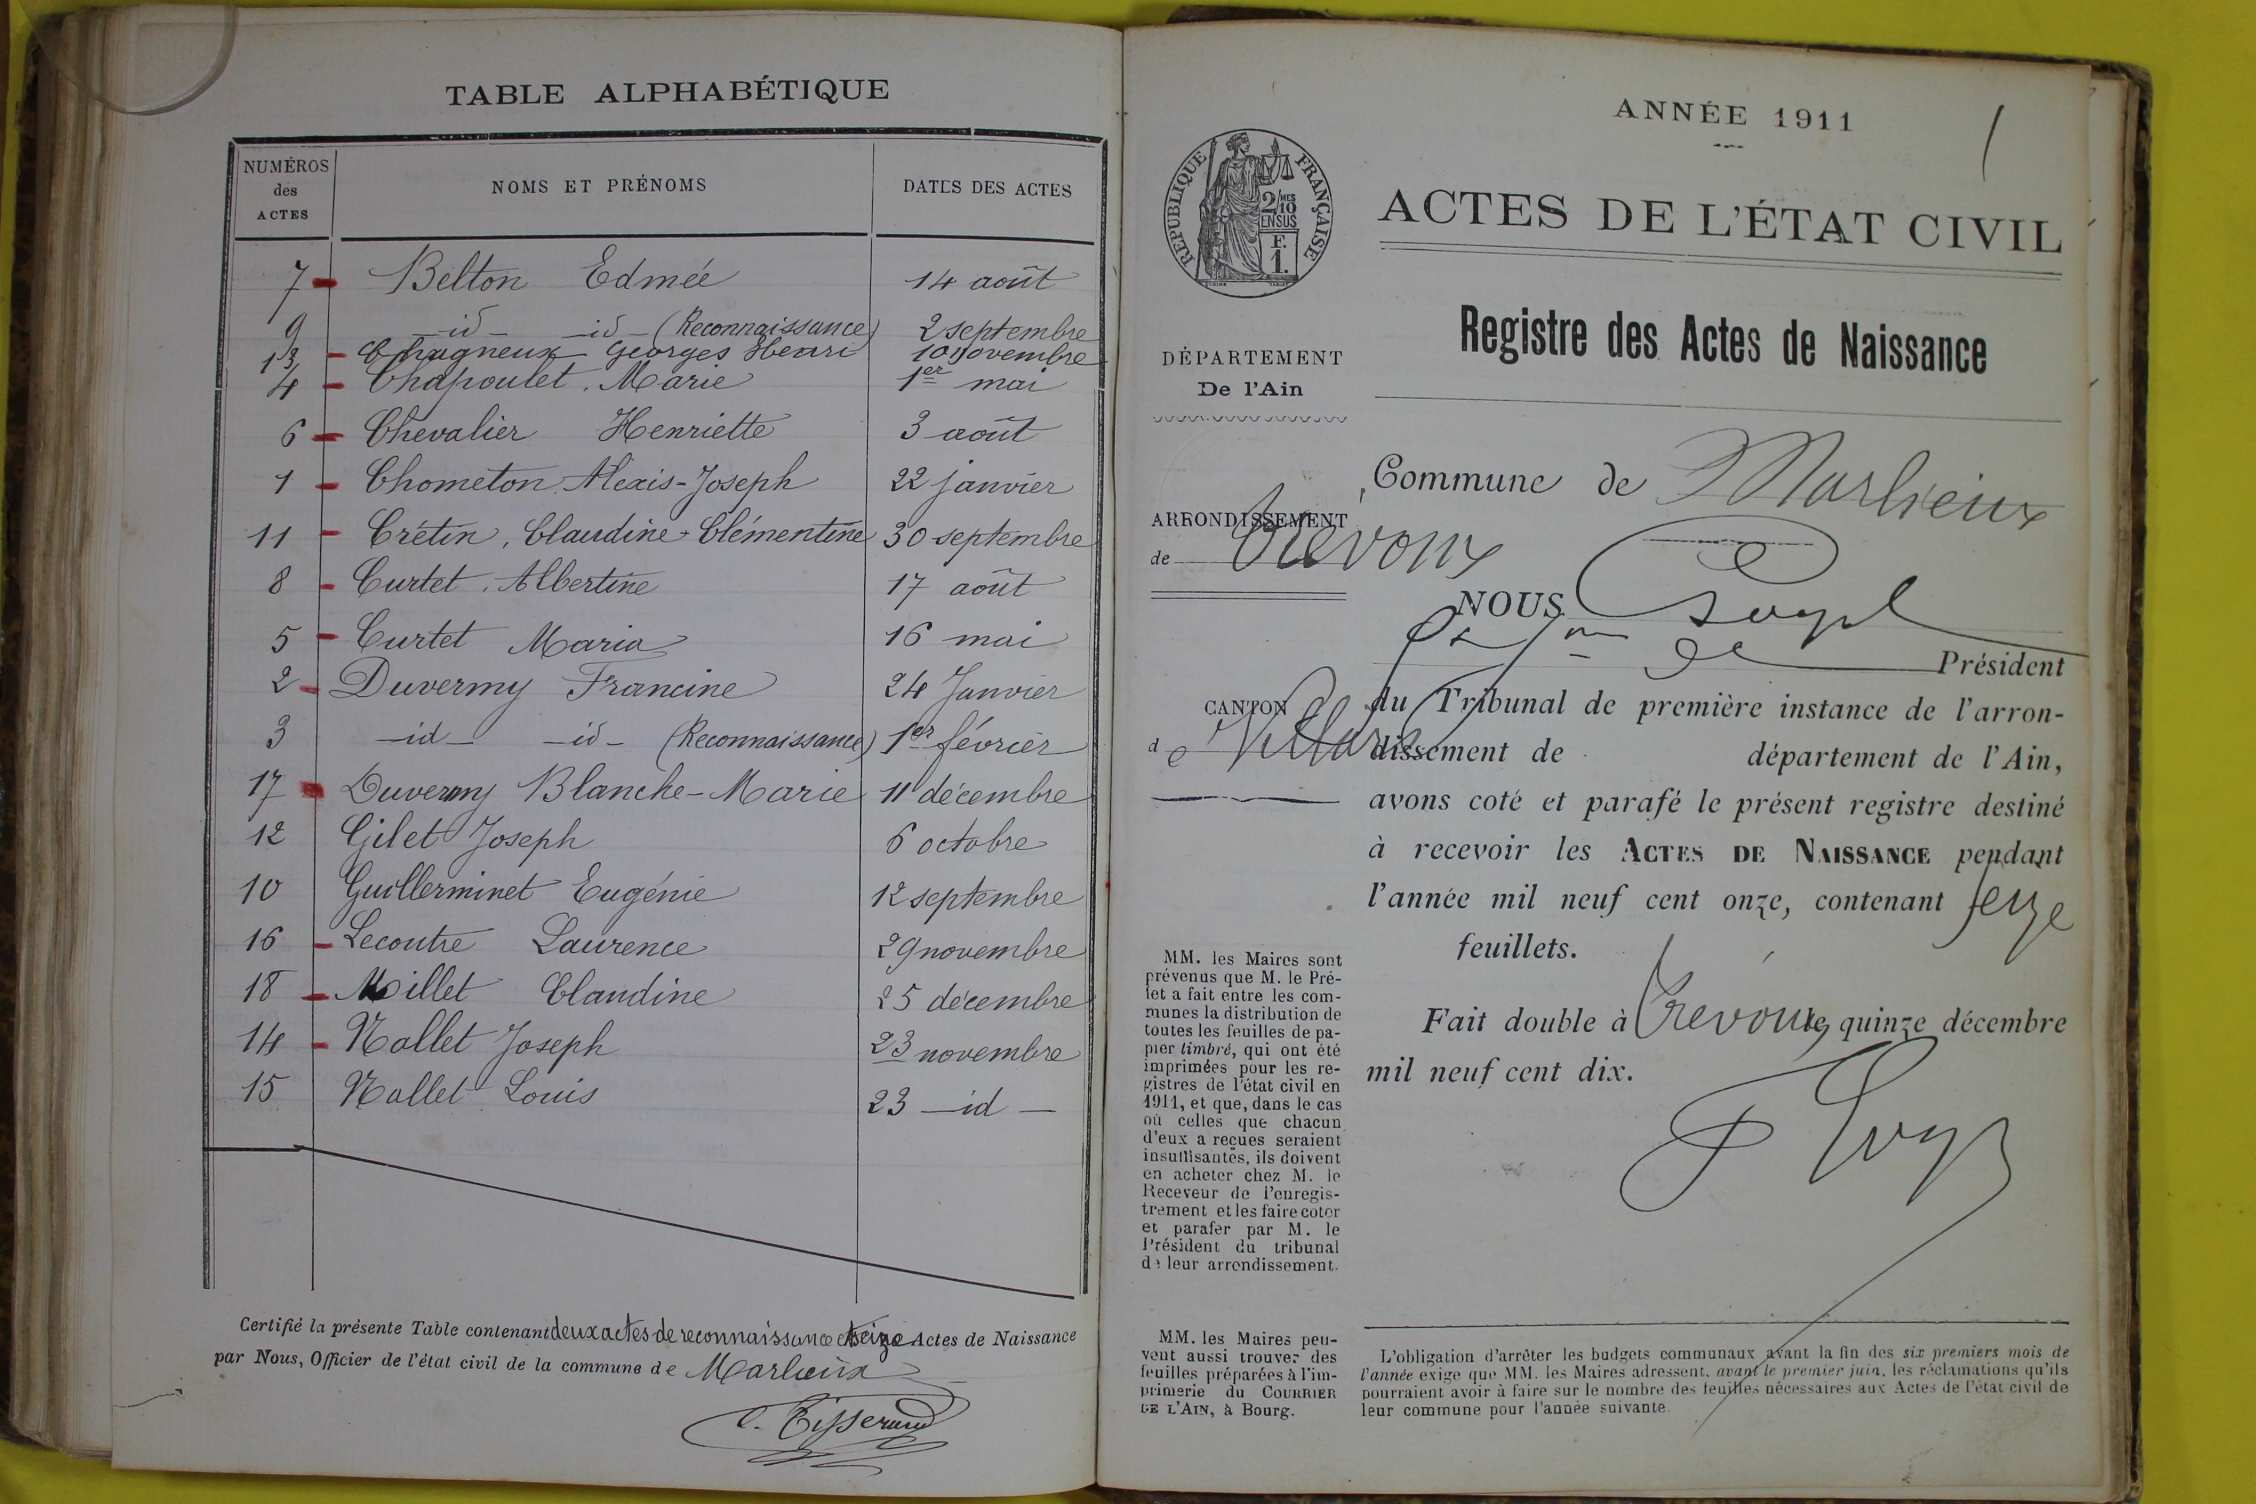 TABLE ALPHABÉTIQUE
NUMÉROS des ACTES NOMS ET PRÉNOMS DATES DES ACTES
7 Belton Edmée 14 août
9 -id- -id- (Reconnaissance) 2 septembre
13 Chagneux Georges Henri 10 novembre
4 Chapoulet, Marie 1er mai
6 Chevalier Henriette 3 août
1 Chometon, Alexis-Joseph 22 janvier
11 Crétin, Claudine-Clémentine 30 septembre
8 Curtet, Albertine 17 août
5 Curtet Maria 16 mai
2 Duvermy Francine 24 Janvier
3 -id- -id- (Reconnaissance) 1er février
17 Duvermy Blanche-Marie 11 décembre
12 Gilet Joseph 6 octobre
10 Guillerminet Eugénie 12 septembre
16 Lecoutre Laurence 29 novembre
18 Millet Claudine 25 décembre
14 Nallet Joseph 23 novembre
15 Nallet Louis 23 -id-
Certifié la présente Table contenant deux actes de reconnaissance et seize Actes de Naissance
par Nous, Officier de l'état civil de la commune de Marlieux
C. Tisserand
ANNÉE 1911
1
RÉPUBLIQUE FRANÇAISE
2/MES 10 EN SUS
F. 1.
ACTES DE L'ÉTAT CIVIL
Registre des Actes de Naissance
DÉPARTEMENT
De l'Ain
ARRONDISSEMENT
de Trévoux
CANTON
de Villars
MM. les Maires sont
prévenus que M. le Pré-
fet a fait entre les com-
munes la distribution de
toutes les feuilles de pa-
pier timbré, qui ont été
imprimées pour les re-
gistres de l'état civil en
1911, et que, dans le cas
où celles que chacun
d'eux a reçues seraient
insuffisantes, ils doivent
en acheter chez M. le
Receveur de l'enregis-
trement et les faire coter
et parafer par M. le
Président du tribunal
de leur arrondissement.
MM. les Maires peu-
vent aussi trouver des
feuilles préparées à l'im-
primerie du COURRIER
DE L'AIN, à Bourg.
Commune de Marlieux
NOUS
Président
du Tribunal de première instance de l'arron-
dissement de département de l'Ain,
avons coté et parafé le présent registre destiné
à recevoir les ACTES DE NAISSANCE pendant
l'année mil neuf cent onze, contenant seize
feuillets.
Fait double à Trévoux, le quinze décembre
mil neuf cent dix.
L'obligation d'arrêter les budgets communaux avant la fin des six premiers mois de
l'année exige que MM. les Maires adressent, avant le premier juin, les réclamations qu'ils
pourraient avoir à faire sur le nombre des feuilles nécessaires aux Actes de l'état civil de
leur commune pour l'année suivante.